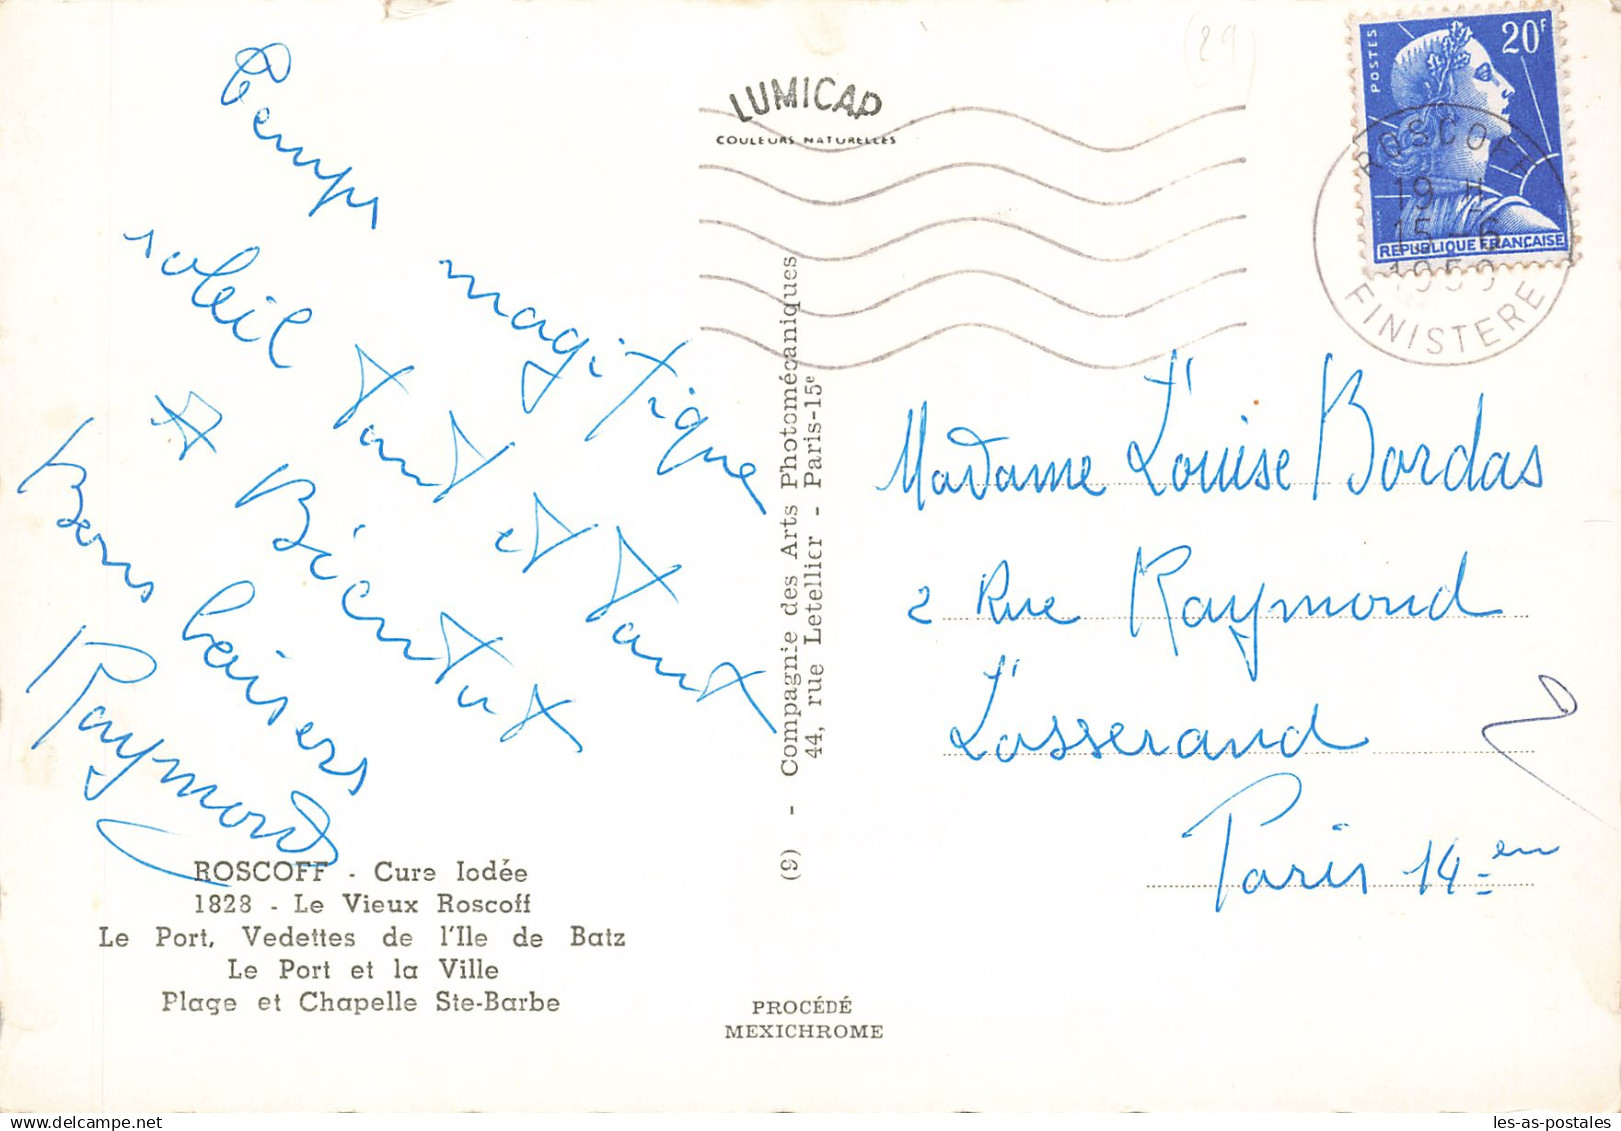 Temps magifique
soleil tant et tant
A Bientut
Bons baisers
Raymonde
ROSCOFF - Cure Iodée
1828 - Le Vieux Roscoff
Le Port, Vedettes de l'Ile de Batz
Le Port et la Ville
Plage et Chapelle Ste-Barbe
LUMICAP
COULEURS NATURELLES
(9) - Compagnie des Arts Photomécaniques
44, rue Letellier - Paris-15e
PROCÉDÉ
MEXICHROME
(29)
POSTES
20F
REPUBLIQUE FRANÇAISE
ROSCOFF
19 H
15 - 6
1959
FINISTERE
Madame Louise Bordas
2 Rue Raymond
Losserand
Paris 14=en
les-as-postales